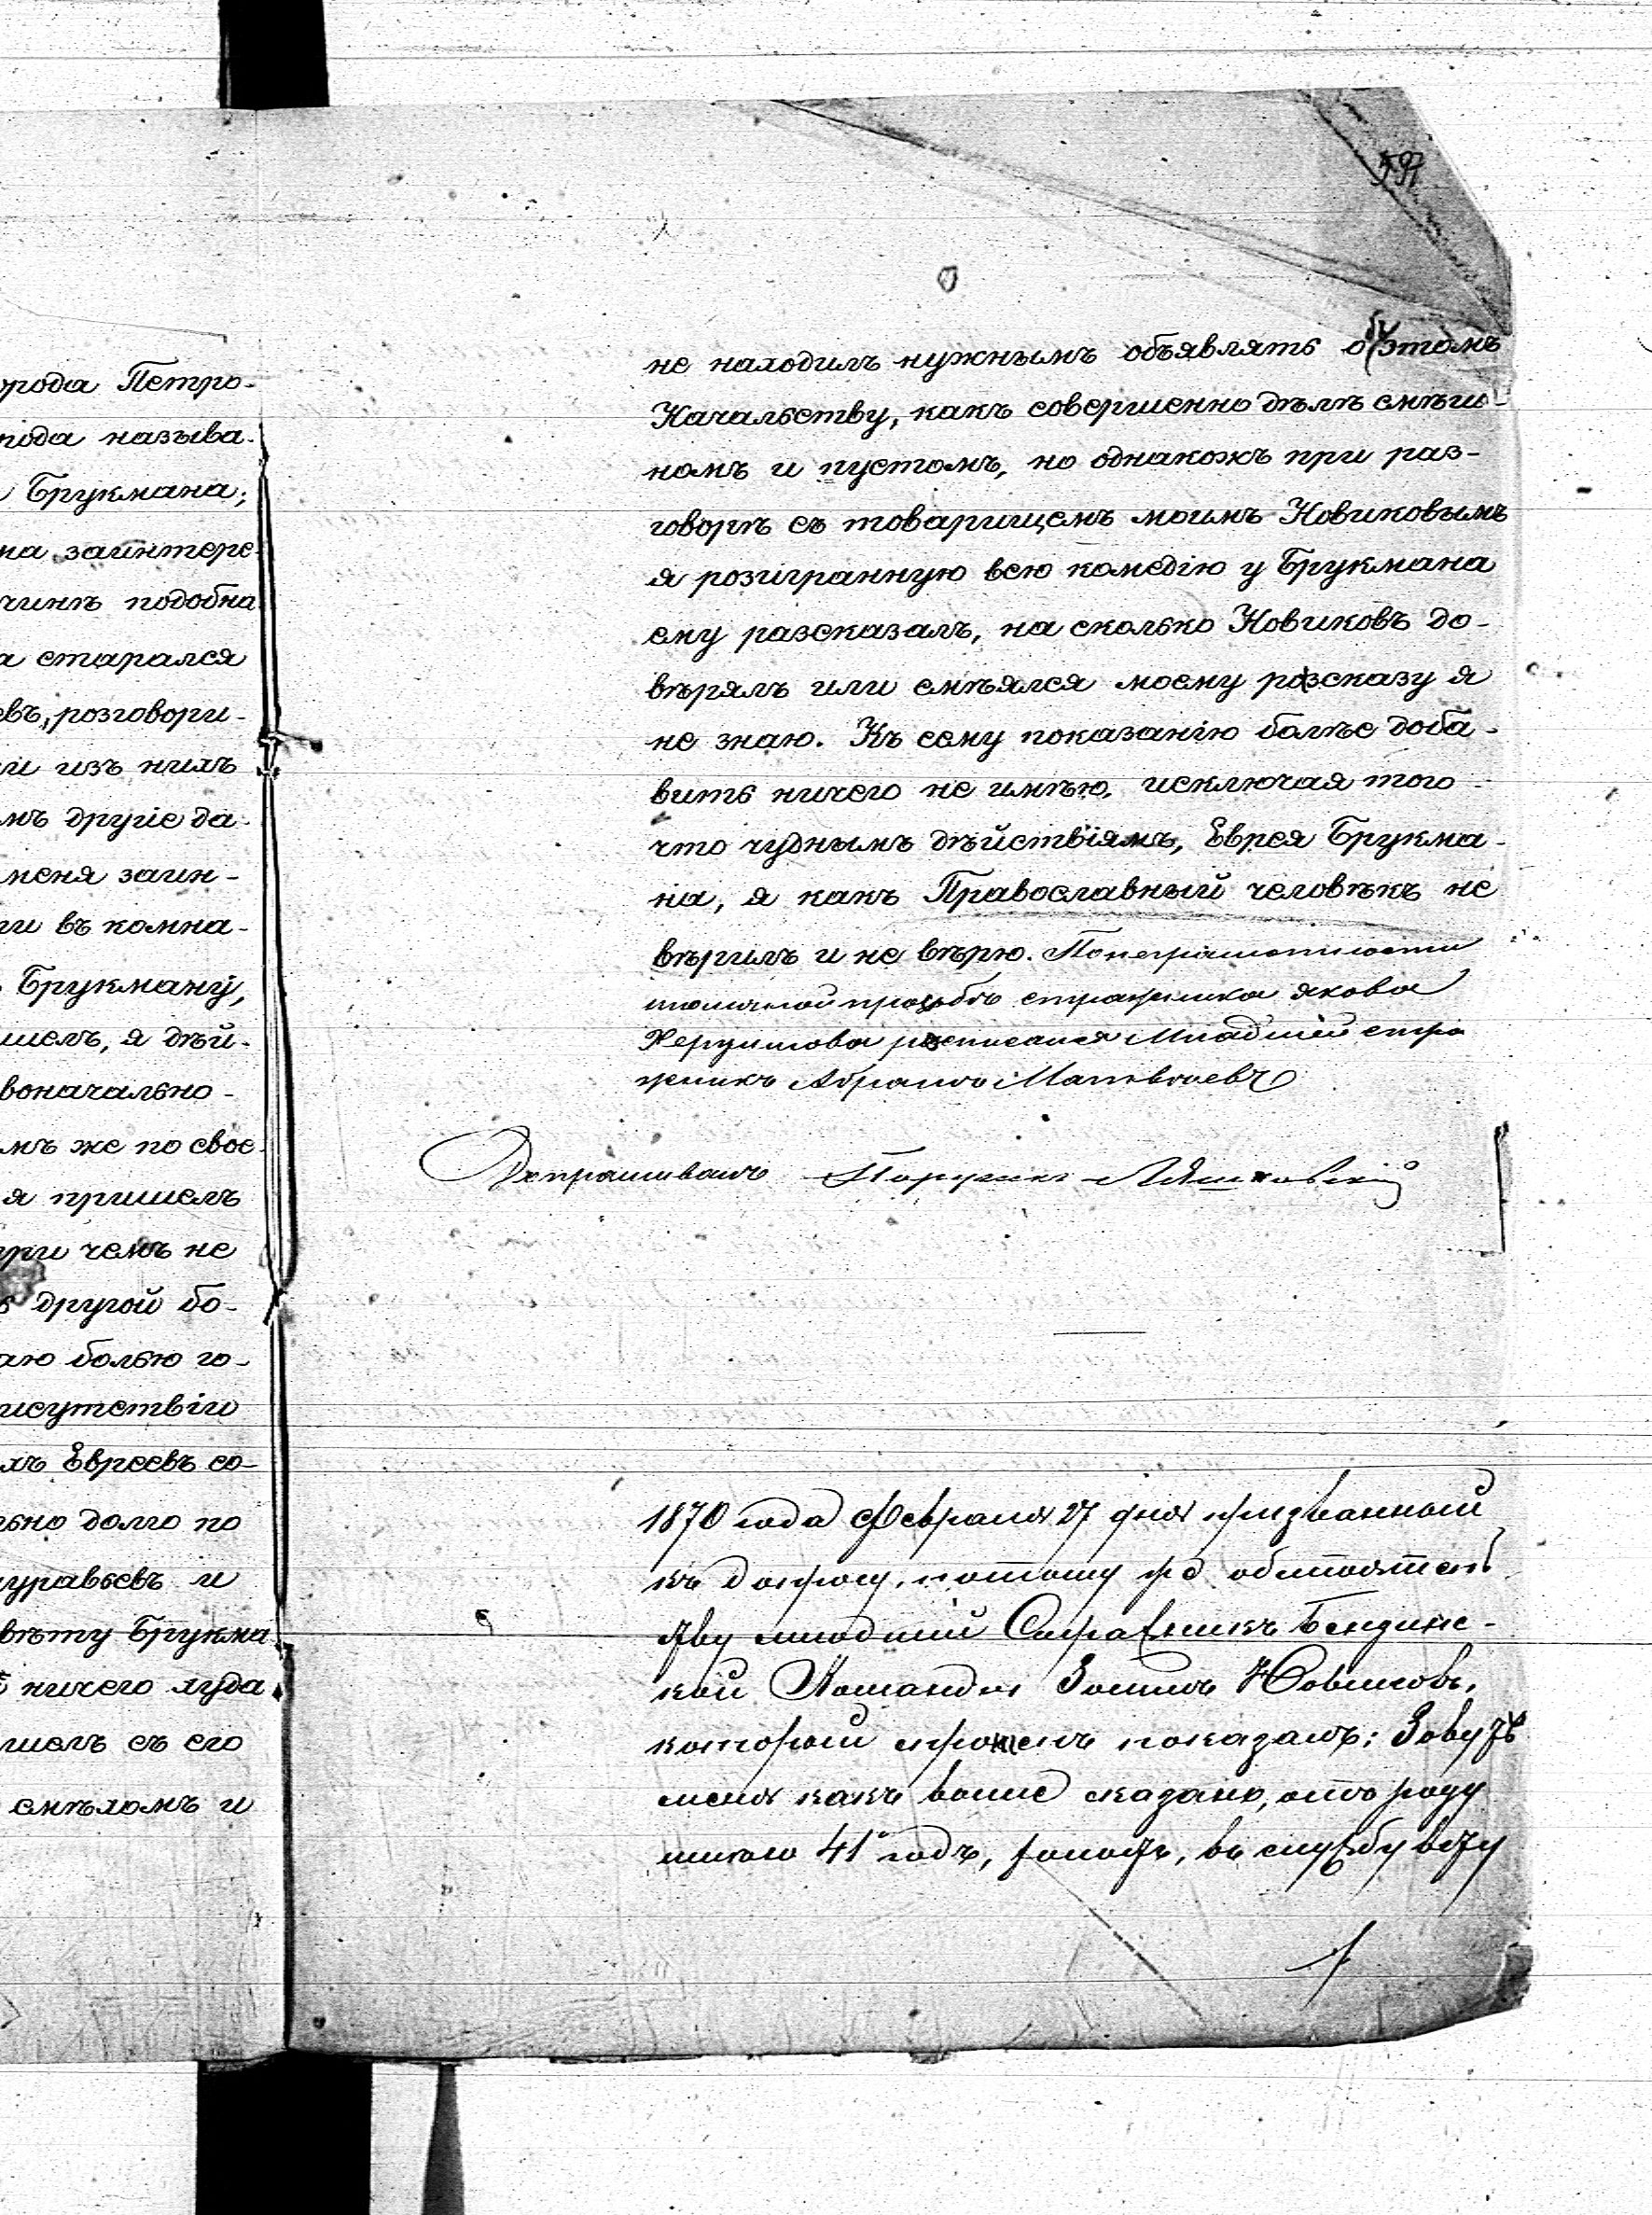 рода Петро-
рода называ-
Брукмана;
на заинтере
чинѣ подобна
а старался
евъ, розговори-
и изъ нихъ
мъ другіе да-
меня заин-
ги въ комна-
Брукману,
шелъ, я дѣй-
воначально-
мъ же по свое
я пришелъ
при чемъ не
другой бо-
аю болью го-
рисутствіи
хъ Евреевъ со-
льно долго по
Муравьевъ и
вѣту Брукма
ничего худа
шелъ съ его
смѣхомъ и
597
не находилъ нужнымъ объявлять объ этомъ
Начальству, какъ совершенно дѣлѣ смѣш-
номъ и пустомъ, но однакожъ при раз-
говорѣ съ товарищемъ моимъ Новиковымъ
я розигранную всю комедію у Брукмана
ему разсказалъ, на сколько Новиковъ до-
вѣрялъ или смѣялся моему розсказу я
не знаю. Къ сему показанію болѣе доба-
вить ничего не имѣю, исключая того
что чуднымъ дѣйствіямъ, Еврея Брукма-
на, я какъ Православный человѣкъ не
вѣрилъ и не вѣрю. Понеграмотности
и личной прозьбѣ стражника Якова
росписался Младшій стра
жникъ Абрамъ Матвѣевъ
Допрашивалъ Поручикъ
1870 года Февраля 27 дня призванный
къ допросу, потому же обстоятель
ству младшій Стражникъ Бендинс-
кой Команды Новиковъ,
который спрошенъ показалъ: Зовутъ
меня какъ выше сказано, отъ роду
имѣю 41 годъ, холостъ, въ службу всту